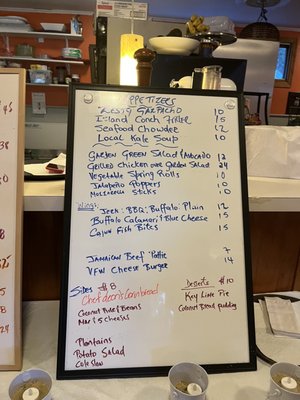 APPETIZERS
Zesty GAZPACHO 10
Island Conch Fritter 15
Seafood Chowder 12
Local Kale Soup 10
Garden Green Salad & Avocado 12
Grilled Chicken over Garden Salad 24
Vegetable Spring Rolls 10
Jalapeño Poppers 10
Mozzarella Sticks 10
Wings:
Jerk: BBQ: Buffalo: Plain 12
Buffalo Calamari & Blue Cheese 15
Cajun Fish Bites 15
Jamaican Beef Pattie 7
VFW Cheese Burger 14
Sides $8
Chef deon's Cornbread
Coconut Rice & Beans
Mac & 5 Cheeses
Plantains
Potato Salad
Cole Slaw
Deserts $10
Key Lime Pie
Coconut Bread pudding